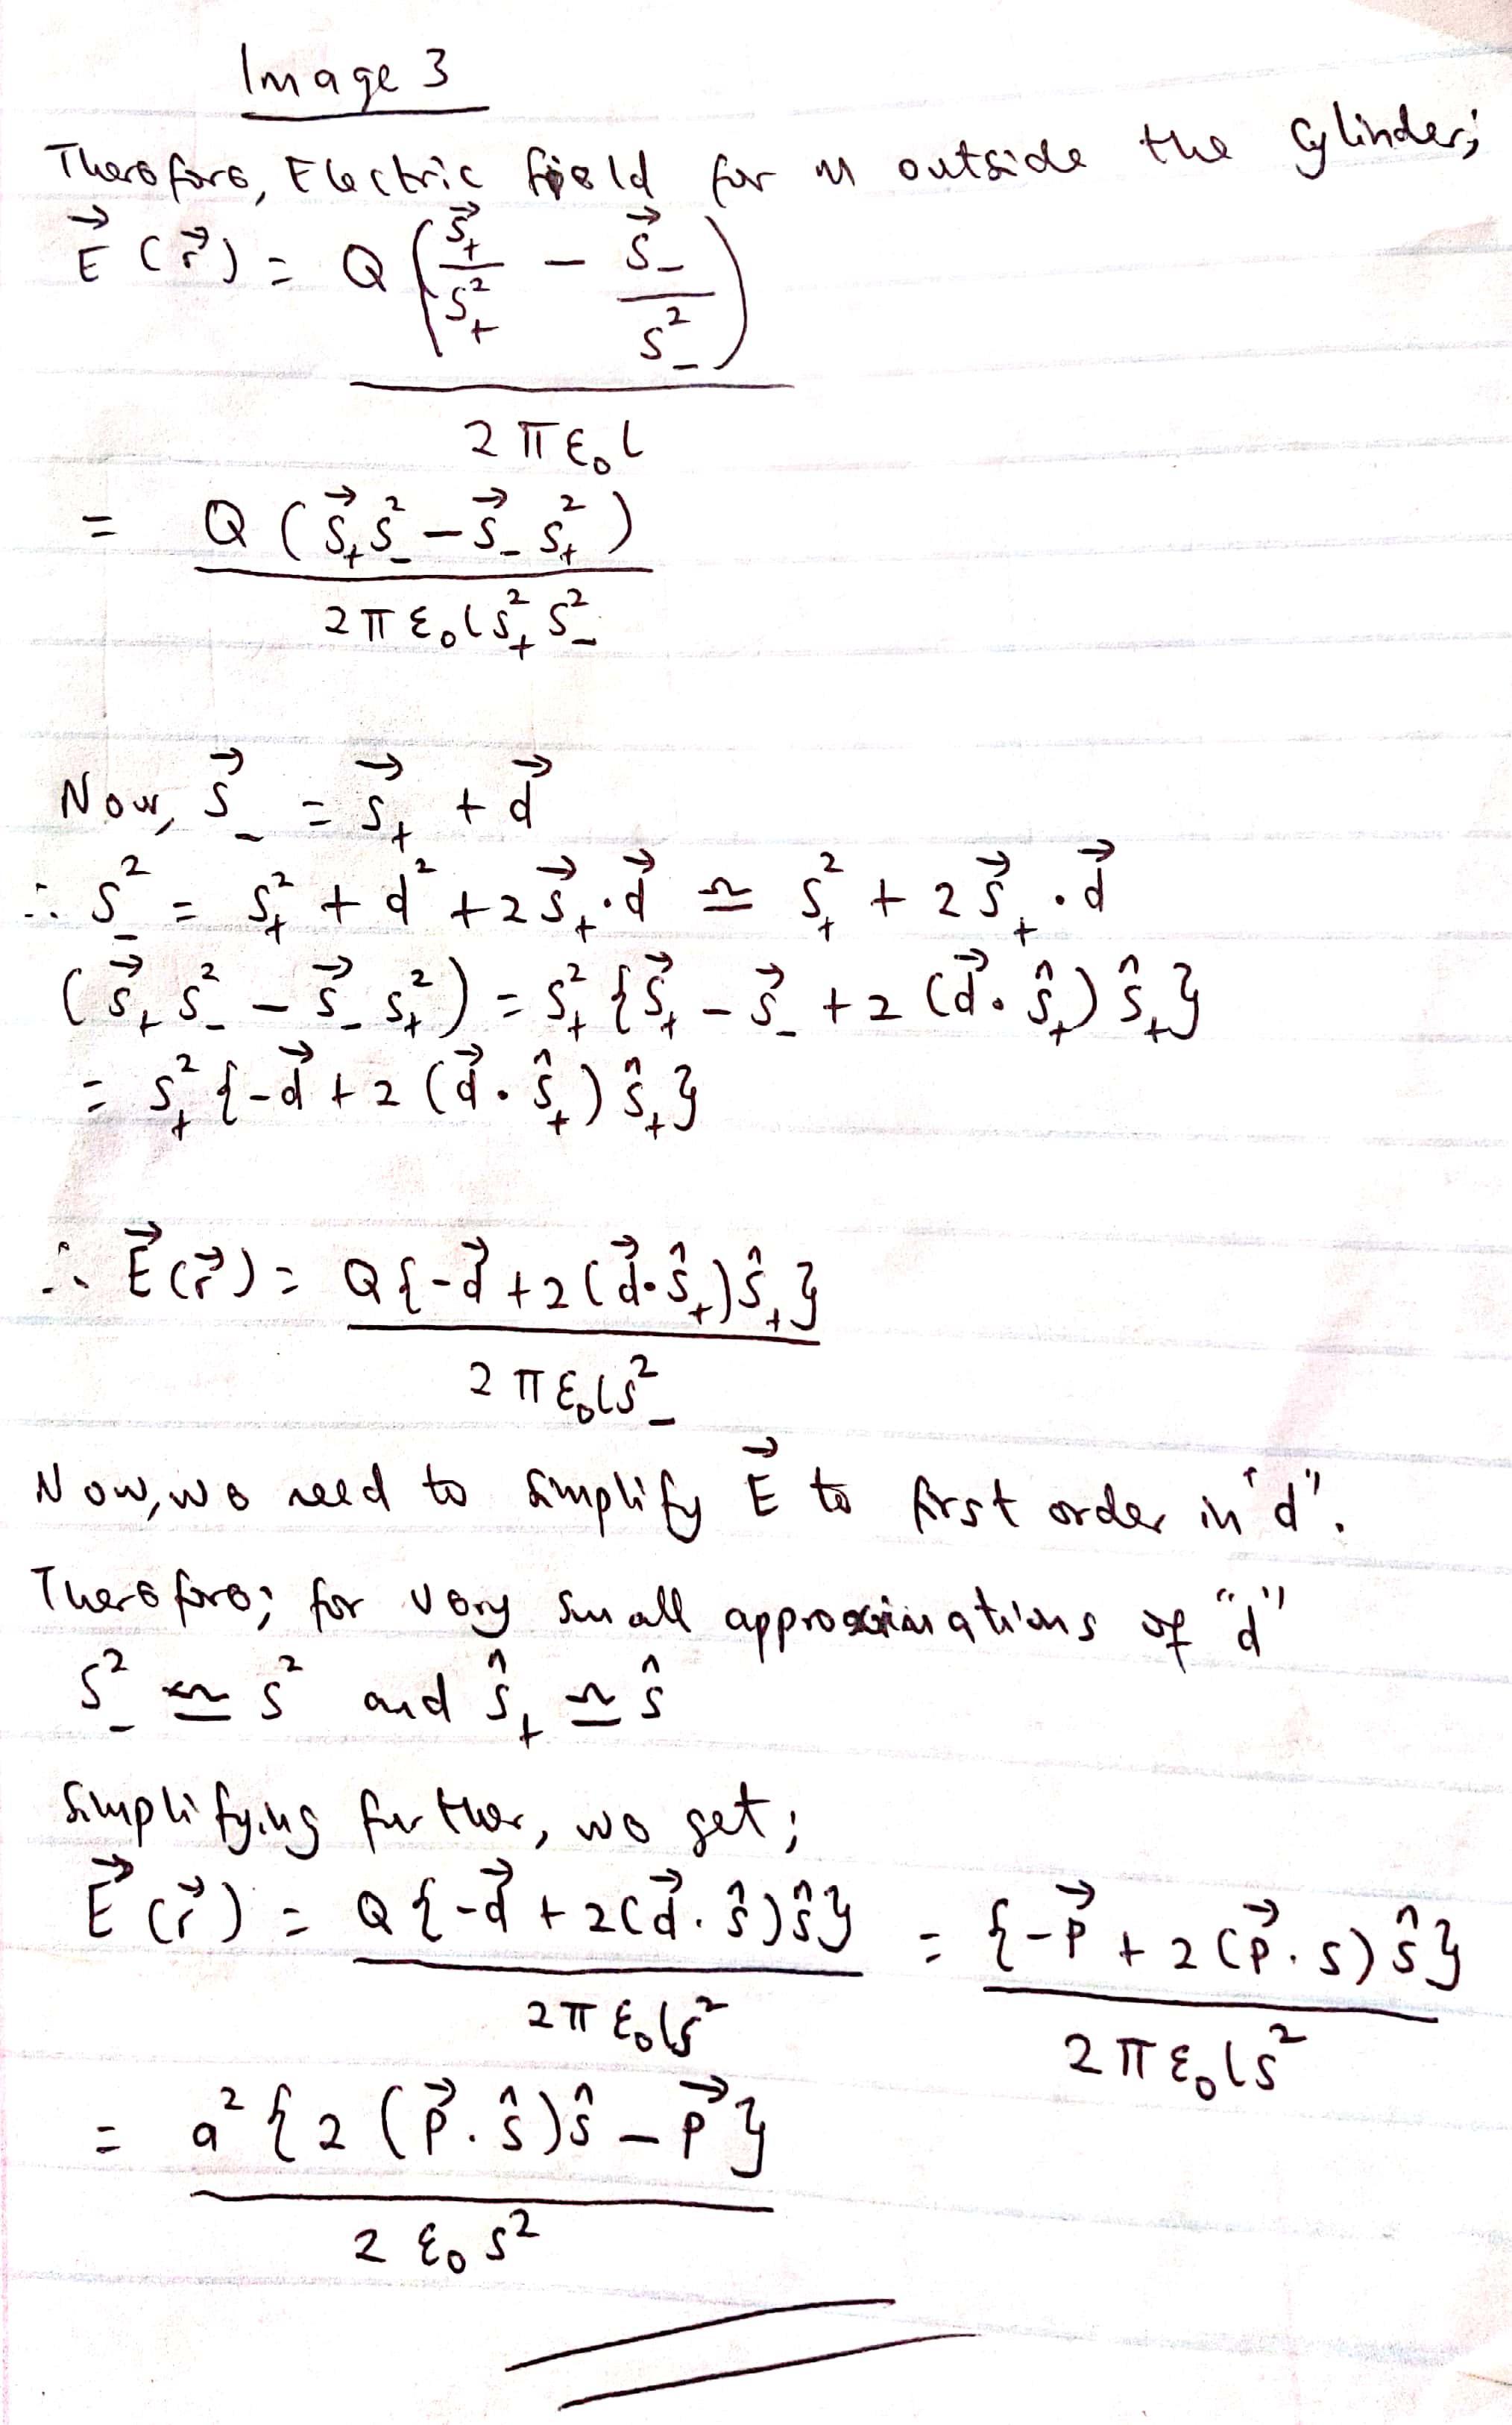 Image 3
Therefore, Electric field for m outside the cylinder;
E⃗ (r⃗) = Q (s⃗₊/s₊² − s⃗₋/s₋²) / 2πε₀l
= Q (s⃗₊s₋² − s⃗₋s₊²) / 2πε₀l s₊² s₋²
Now, s⃗₋ = s⃗₊ + d⃗
∴ s₋² = s₊² + d² + 2s⃗₊·d⃗ ≃ s₊² + 2s⃗₊·d⃗
(s⃗₊s₋² − s⃗₋s₊²) = s₊² {s⃗₊ − s⃗₋ + 2 (d⃗·ŝ₊) ŝ₊}
= s₊² {−d⃗ + 2 (d⃗·ŝ₊) ŝ₊}
∴ E⃗(r⃗) = Q{−d⃗ + 2(d⃗·ŝ₊)ŝ₊} / 2πε₀l s₋²
Now, we need to simplify E⃗ to first order in "d".
Therefore; for very small approximations of "d"
s₋² ≃ s² and ŝ₊ ≃ ŝ
Simplifying further, we get;
E⃗ (r⃗) = Q {−d⃗ + 2(d⃗·ŝ)ŝ} / 2πε₀l s² = {−p⃗ + 2 (p⃗·s) ŝ} / 2πε₀l s²
= a² {2 (p⃗·ŝ)ŝ − p⃗} / 2 ε₀ s²